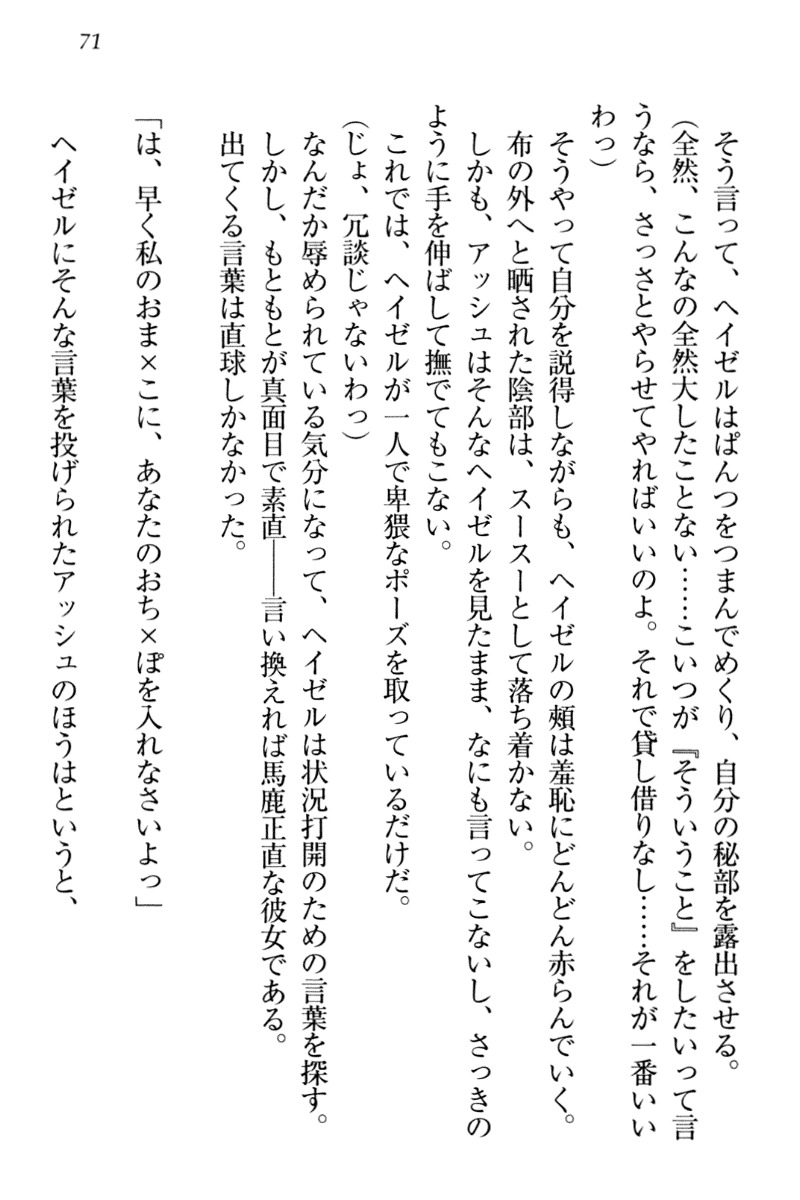 71
そう言って、ヘイゼルはぱんつをつまんでめくり、自分の秘部を露出させる。
(全然、こんなの全然大したことない……こいつが『そういうこと』をしたいって言
うなら、さっさとやらせてやればいいのよ。それで貸し借りなし……それが一番いい
わっ)
そうやって自分を説得しながらも、ヘイゼルの頰は羞恥にどんどん赤らんでいく。
布の外へと晒された陰部は、スースーとして落ち着かない。
しかも、アッシュはそんなヘイゼルを見たまま、なにも言ってこないし、さっきの
ように手を伸ばして撫でてもこない。
これでは、ヘイゼルが一人で卑猥なポーズを取っているだけだ。
(じょ、冗談じゃないわっ)
なんだか辱められている気分になって、ヘイゼルは状況打開のための言葉を探す。
しかし、もともとが真面目で素直――言い換えれば馬鹿正直な彼女である。
出てくる言葉は直球しかなかった。
「は、早く私のおま×こに、あなたのおち×ぽを入れなさいよっ」
ヘイゼルにそんな言葉を投げられたアッシュのほうはというと、